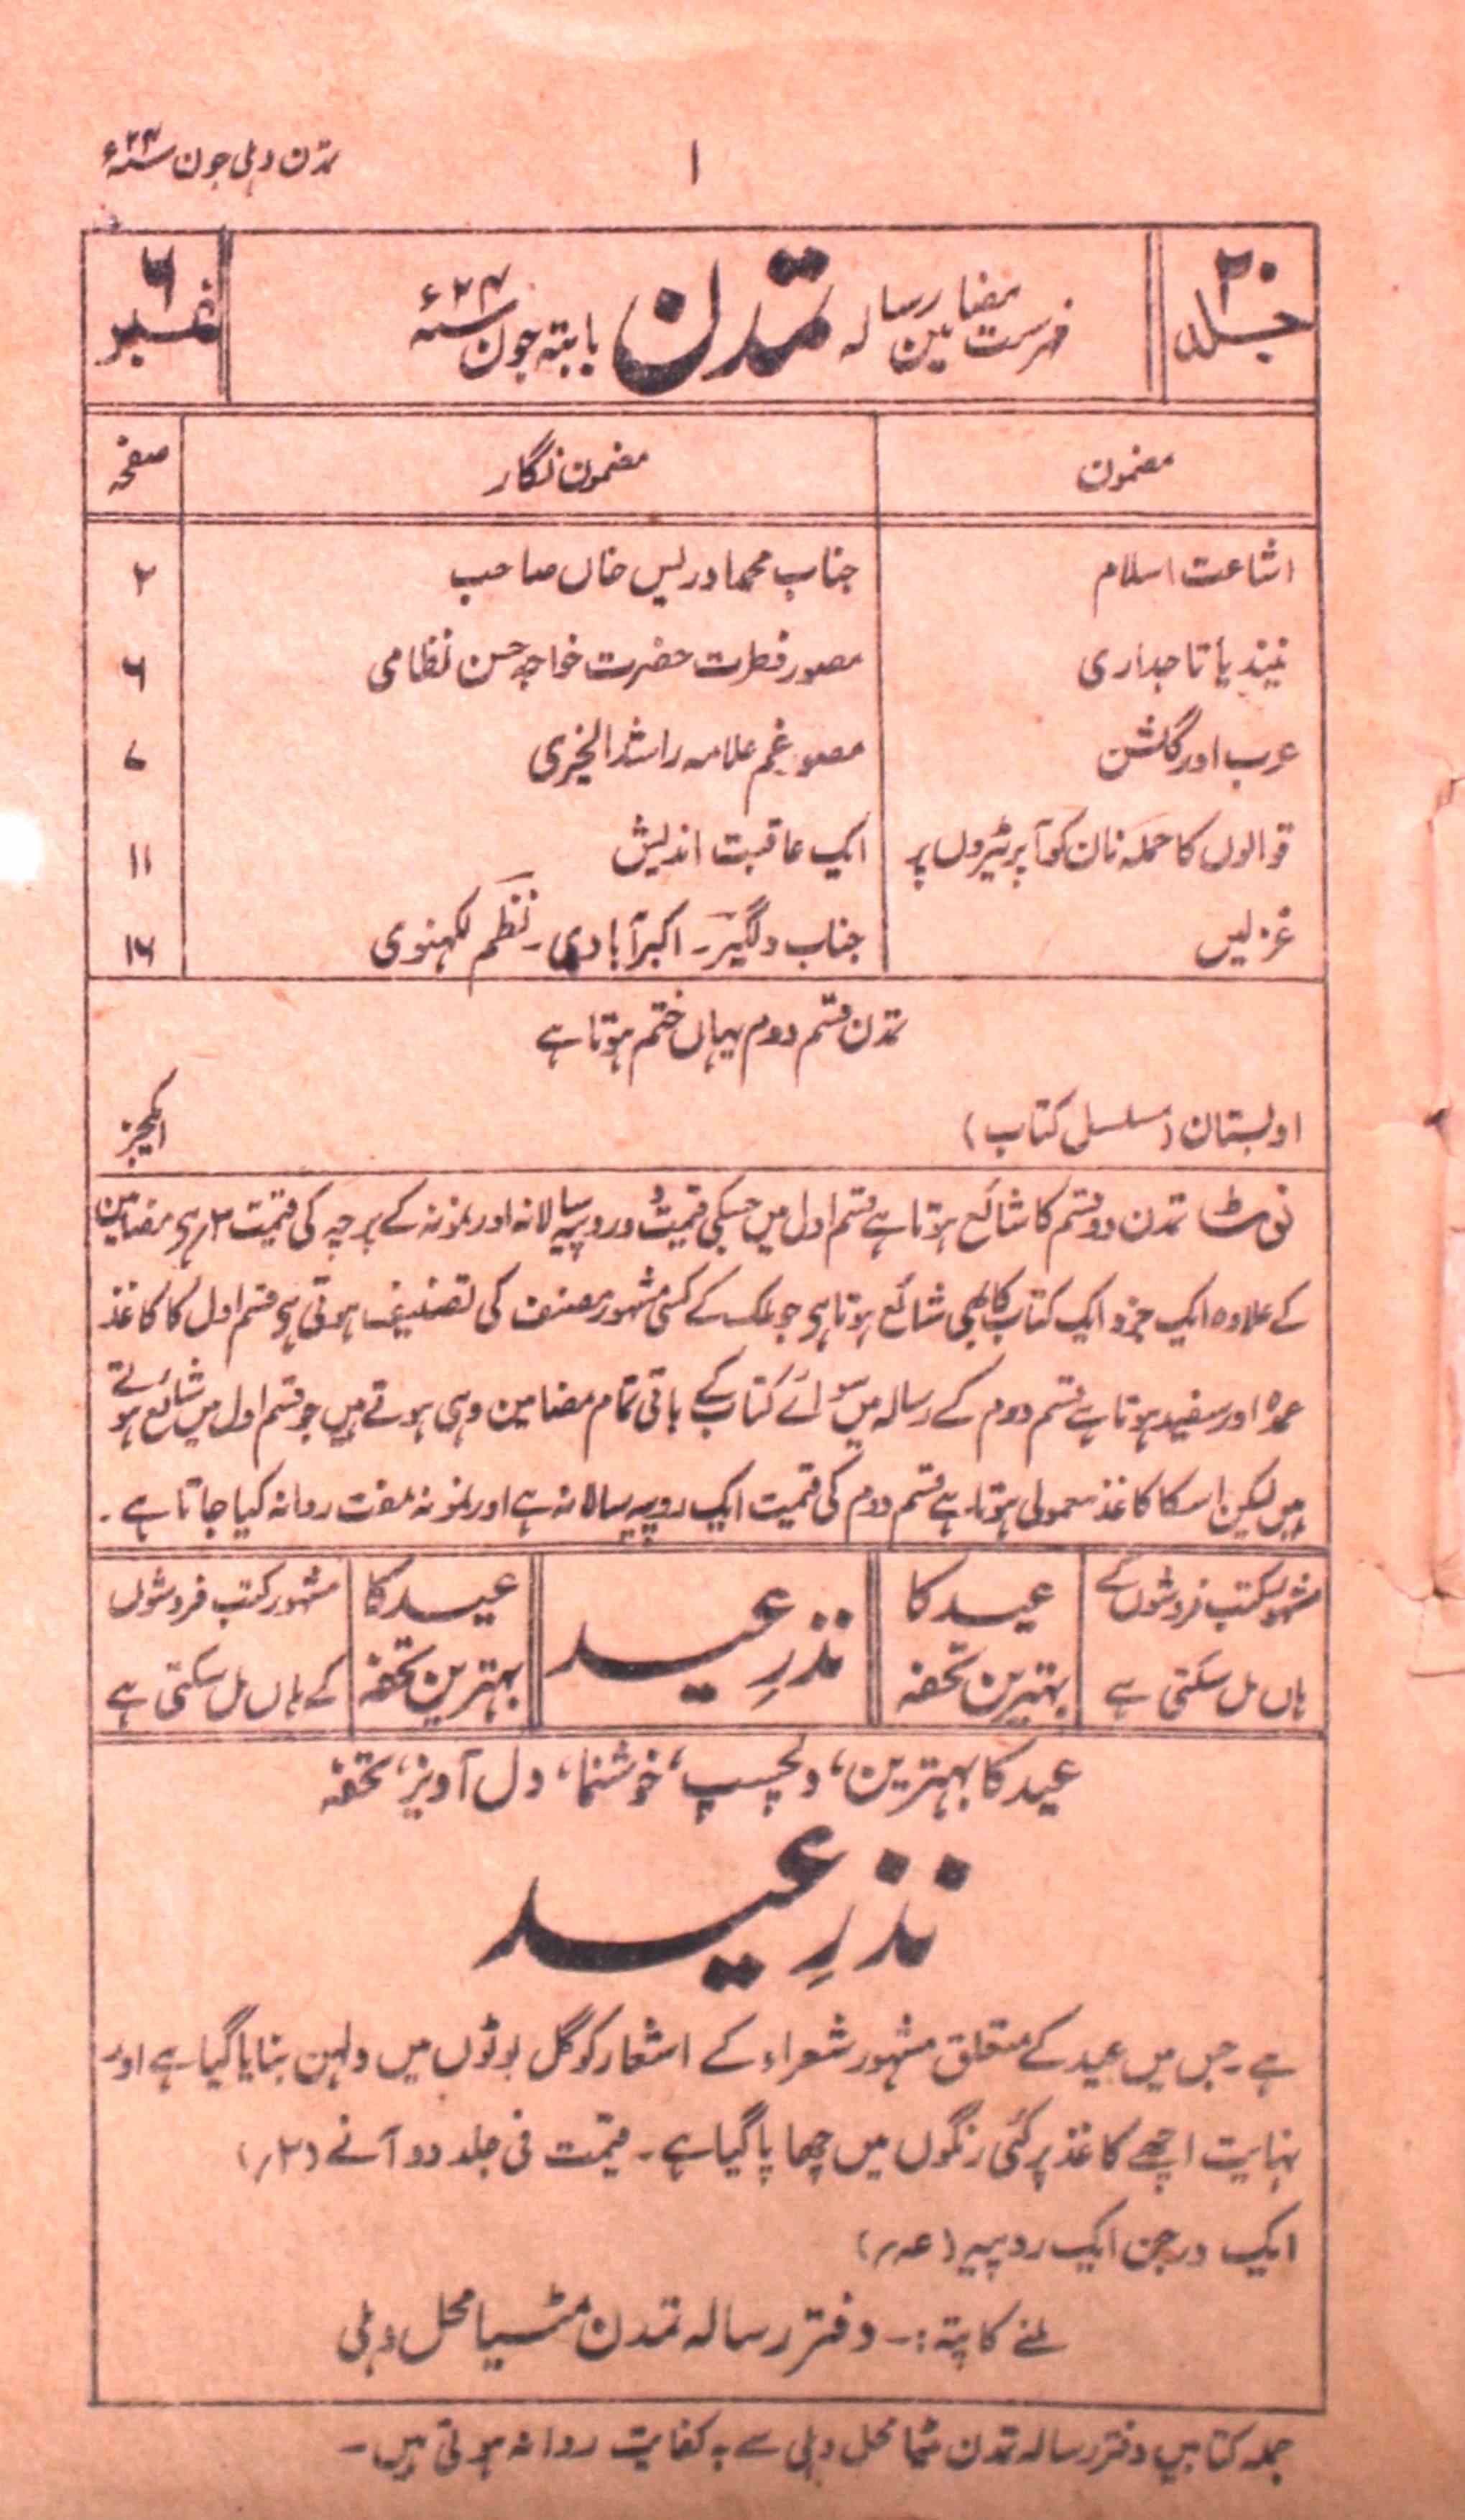 تمدن دہلی جون سنہ ۲۴ء
۱
جلد ۲۰
فہرست مضامین رسالہ تمدن بابتہ جون سنہ ۲۴ء
نمبر ۶
مضمون مضمون نگار صفحہ
اشاعت اسلام جناب محمد ادریس خاں صاحب ۲
نیند یا تاجداری مصور فطرت حضرت خواجہ حسن نظامی ۶
عرب اور گلشن مصور غم علامہ راشد الخیری ۷
قوالوں کا حملہ نان کوآپریٹروں پر ایک عاقبت اندیش ۱۱
غزلیں جناب دلگیر۔ اکبرآبادی۔ نظم لکہنوی ۱۶
تمدن قسم دوم یہاں ختم ہوتا ہے
(مسلسل کتاب)
نوٹ تمدن دو قسم کا شائع ہوتا ہے قسم اول میں جسکی قیمت دو روپیہ سالانہ اور نمونہ کے پرچہ کی قیمت ۲؍ ہی مضامین
کے علاوہ ایک جزو ایک کتاب کا بھی شائع ہوتا ہی جو ملک کے کسی مشہور مصنف کی تصنیف ہوتی ہی قسم اول کا کاغذ
عمدہ اور سفید ہوتا ہے قسم دوم کے رسالہ میں سوائے کتاب کے باقی تمام مضامین وہی ہوتے ہیں جو قسم اول میں شائع ہوتے
ہیں لیکن اسکا کاغذ معمولی ہوتا ہے قسم دوم کی قیمت ایک روپیہ سالانہ ہے اور نمونہ مفت روانہ کیا جاتا ہے۔
مشہور کتب فروشوں کے
ہاں مل سکتی ہے
عید کا
بہترین تحفہ
نذرِ عید
عید کا
بہترین تحفہ
مشہور کتب فروشوں
کے ہاں مل سکتی ہے
عید کا بہترین، دلچسپ، خوشنما، دل آویز، تحفہ
نذرِ عید
ہے۔ جس میں عید کے متعلق مشہور شعراء کے اشعار کو گل بوٹوں میں دلہن بنایا گیا ہے اور
نہایت اچھے کاغذ پر کئی رنگوں میں چھاپا گیا ہے۔ قیمت فی جلد دو آنے (۲؍)
ایک درجن ایک روپیہ (عہ؍)
ملنے کا پتہ:۔ دفتر رسالہ تمدن مٹیا محل دہلی
جملہ کتابیں دفتر رسالہ تمدن مٹیا محل دہلی سے بہ کفایت روانہ ہوتی ہیں۔